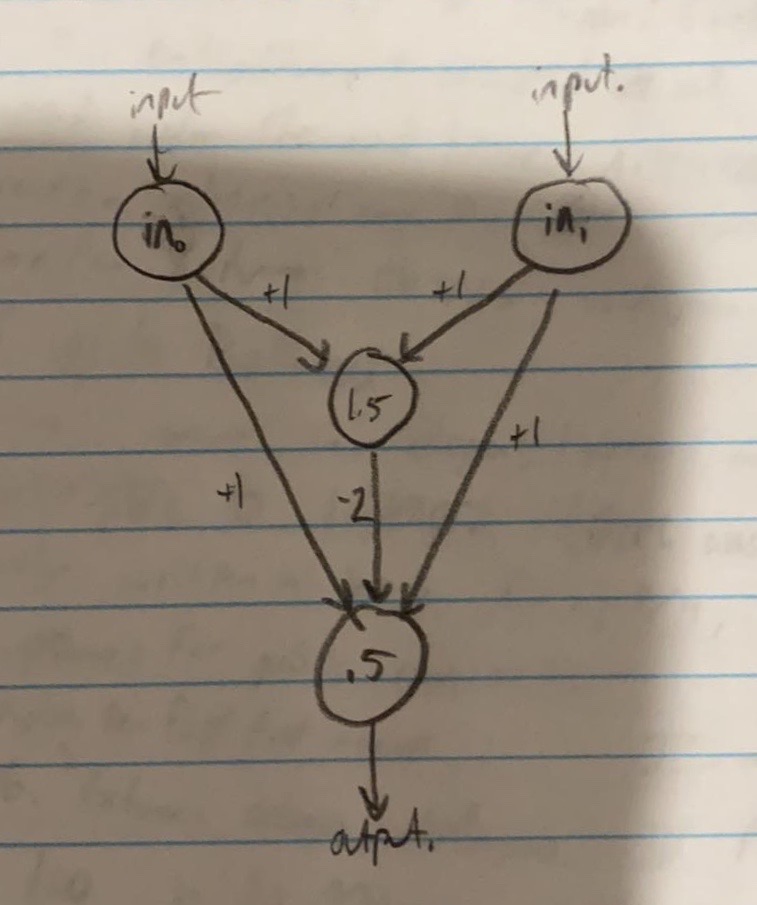 input input.
in₀ in₁
+1 +1
1.5
+1 -2 +1
.5
otpt.